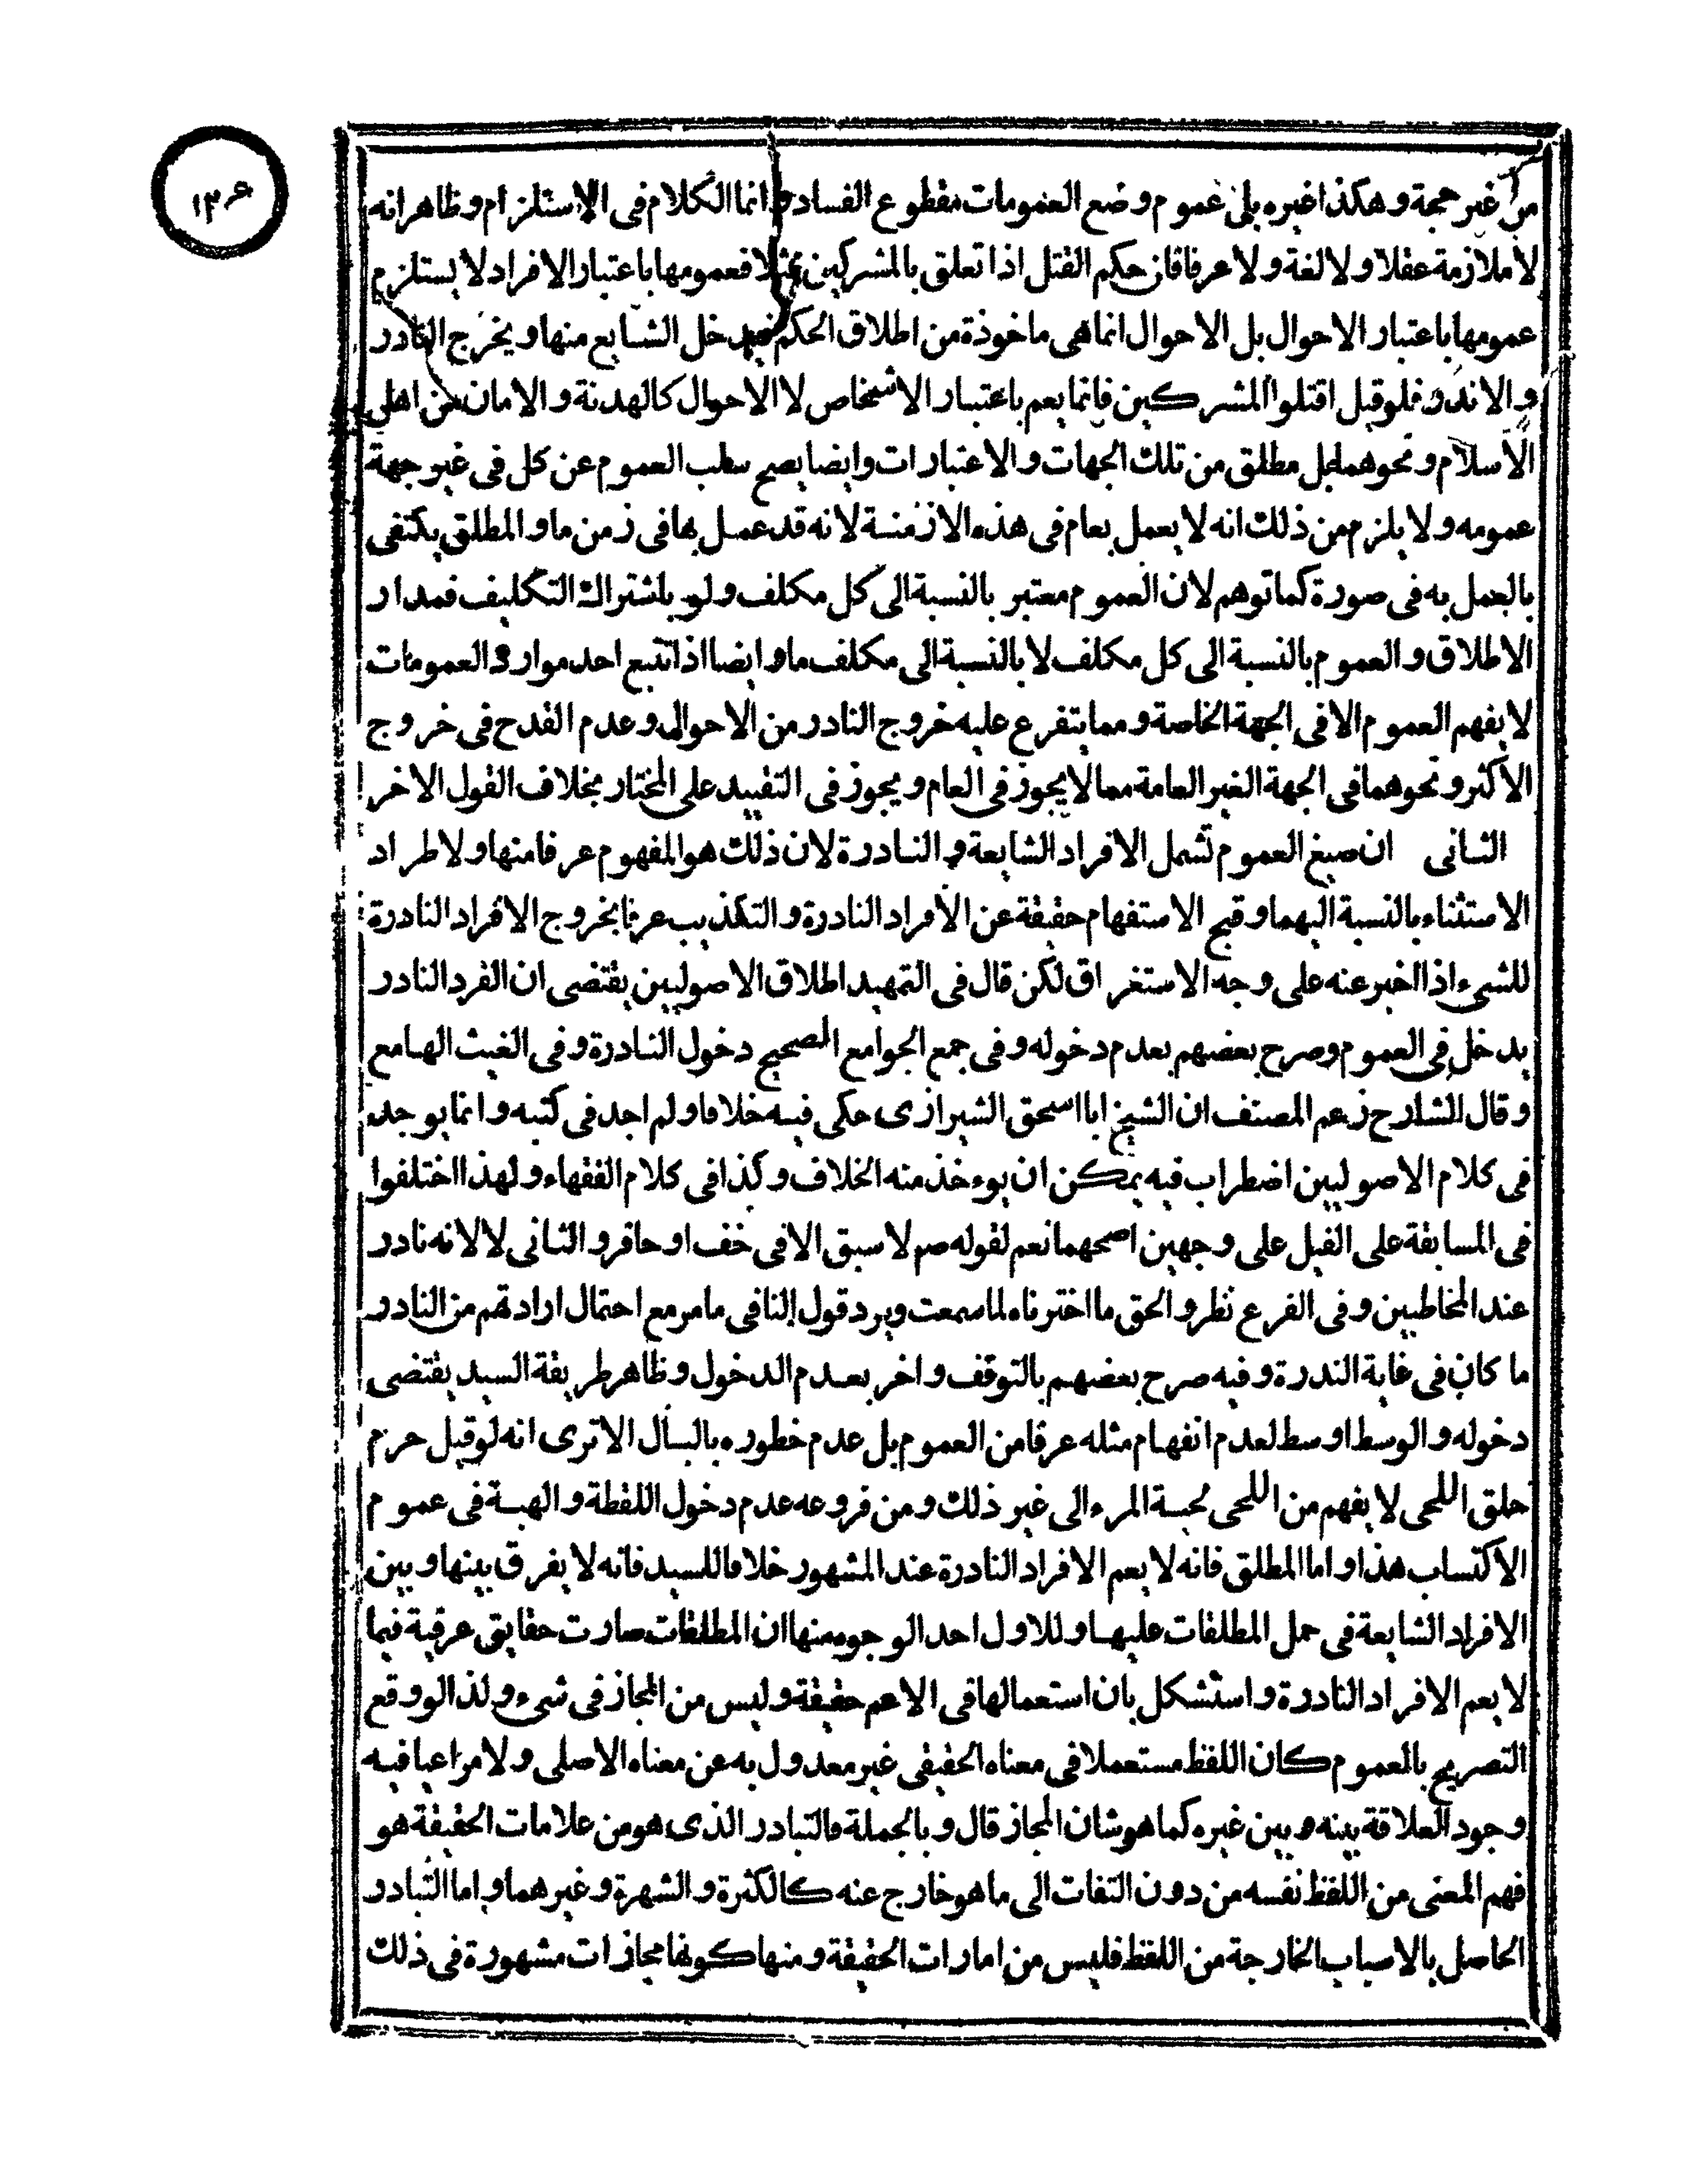 ١٢٤
من غير حجة و هكذا غيره بل عموم وضع العمومات مقطوع الفساد و انما الكلام فى الاستلزام و ظاهر انه
لا ملازمة عقلا و لا لغة و لا عرفا فان حكم القتل اذا تعلق بالمشركين مثلا فعمومها باعتبار الافراد لا يستلزم
عمومها باعتبار الاحوال بل الاحوال انما هى ماخوذة من اطلاق الحكم فيدخل الشايع منها و يخرج النادر
و الاندر فلو قيل اقتلوا المشركين فانما يعم باعتبار الاشخاص لا الاحوال كالهدنة و الامان من اهل
الاسلام و نحوهما بل مطلق من تلك الجهات و الاعتبارات و ايضا يصح سلب العموم عن كل فى غير جهة
عمومه و لا يلزم من ذلك انه لا يعمل بعام فى هذه الازمنة لانه قد عمل بها فى زمن ما و المطلق يكتفى
بالعمل به فى صورة كما توهم لان العموم معتبر بالنسبة الى كل مكلف و لو باشتراك التكليف فمدار
الاطلاق و العموم بالنسبة الى كل مكلف لا بالنسبة الى مكلف ما و ايضا اذا تتبع احد موارد العمومات
لا يفهم العموم الا فى الجهة الخاصة و مما يتفرع عليه خروج النادر من الاحوال و عدم القدح فى خروج
الاكثر و نحوهما فى الجهة الغير العامة مما لا يجوز فى العام و يجوز فى التقييد على المختار بخلاف القول الاخر
الثانى ان صيغ العموم تشمل الافراد الشايعة و النادرة لان ذلك هو المفهوم عرفا منها و لاطراد
الاستثناء بالنسبة اليهما و قبح الاستفهام حقيقة عن الافراد النادرة و التكذيب عرفا بخروج الافراد النادرة
للشىء اذا اخبر عنه على وجه الاستغراق لكن قال فى التمهيد اطلاق الاصوليين يقتضى ان الفرد النادر
يدخل فى العموم و صرح بعضهم بعدم دخوله و فى جمع الجوامع الصحيح دخول النادرة و فى الغيث الهامع
و قال الشارح زعم المصنف ان الشيخ ابا اسحق الشيرازى حكى فيه خلافا و لم اجد فى كتبه و انما يوجد
فى كلام الاصوليين اضطراب فيه يمكن ان يوءخذ منه الخلاف و كذا فى كلام الفقهاء و لهذا اختلفوا
فى المسابقة على الفيل على وجهين اصحهما نعم لقوله صم لا سبق الا فى خف او حافر و الثانى لا لانه نادر
عند المخاطبين و فى الفرع نظر و الحق ما اخترناه لما سمعت و يرد قول النافى ما مر مع احتمال ارادتهم من النادر
ما كان فى غاية الندرة و فيه صرح بعضهم بالتوقف و اخر بعدم الدخول و ظاهر طريقة السيد يقتضى
دخوله و الوسط اوسط لعدم انفهام مثله عرفا من العموم بل عدم خطوره بالبال الا ترى انه لو قيل حرم
حلق اللحى لا يفهم من اللحى لحية المرء الى غير ذلك و من فروعه عدم دخول اللقطة و الهبة فى عموم
الاكتساب هذا و اما المطلق فانه لا يعم الافراد النادرة عند المشهور خلافا للسيد فانه لا يفرق بينها و بين
الافراد الشايعة فى حمل المطلقات عليها و للاول احد الوجوه منها ان المطلقات صارت حقايق عرفية فيما
لا يعم الافراد النادرة و استشكل بان استعمالها فى الاعم حقيقة و ليس من المجاز فى شىء و لذا لو وقع
التصريح بالعموم كان اللفظ مستعملا فى معناه الحقيقى غير معدول به عن معناه الاصلى و لا مراعيا فيه
وجود العلاقة بينه و بين غيره كما هو شان المجاز قال و بالجملة فالتبادر الذى هو من علامات الحقيقة هو
فهم المعنى من اللفظ نفسه من دون التفات الى ما هو خارج عنه كالكثرة و الشهرة و غيرهما و اما التبادر
الحاصل بالاسباب الخارجة من اللفظ فليس من امارات الحقيقة و منها كونها مجازات مشهورة فى ذلك